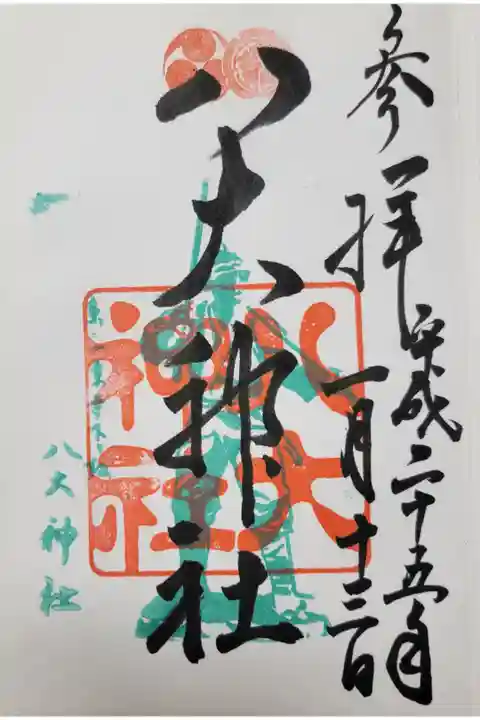 参拝 平成二十五年
一月十三日
八大神社
八大神社
八大神社